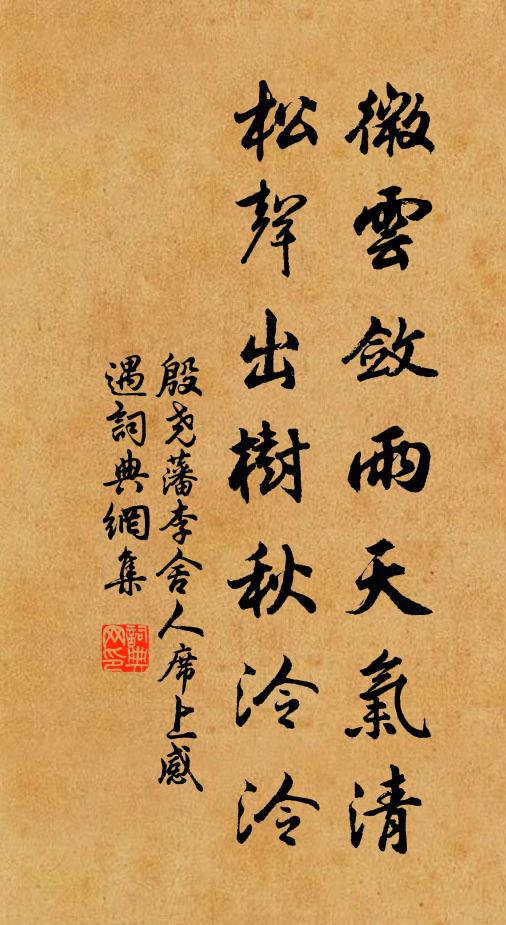 微雲斂雨天氣清
松聲出樹秋泠泠
殷尧藩李舍人席上感
遇詞典網集
詞典
网印